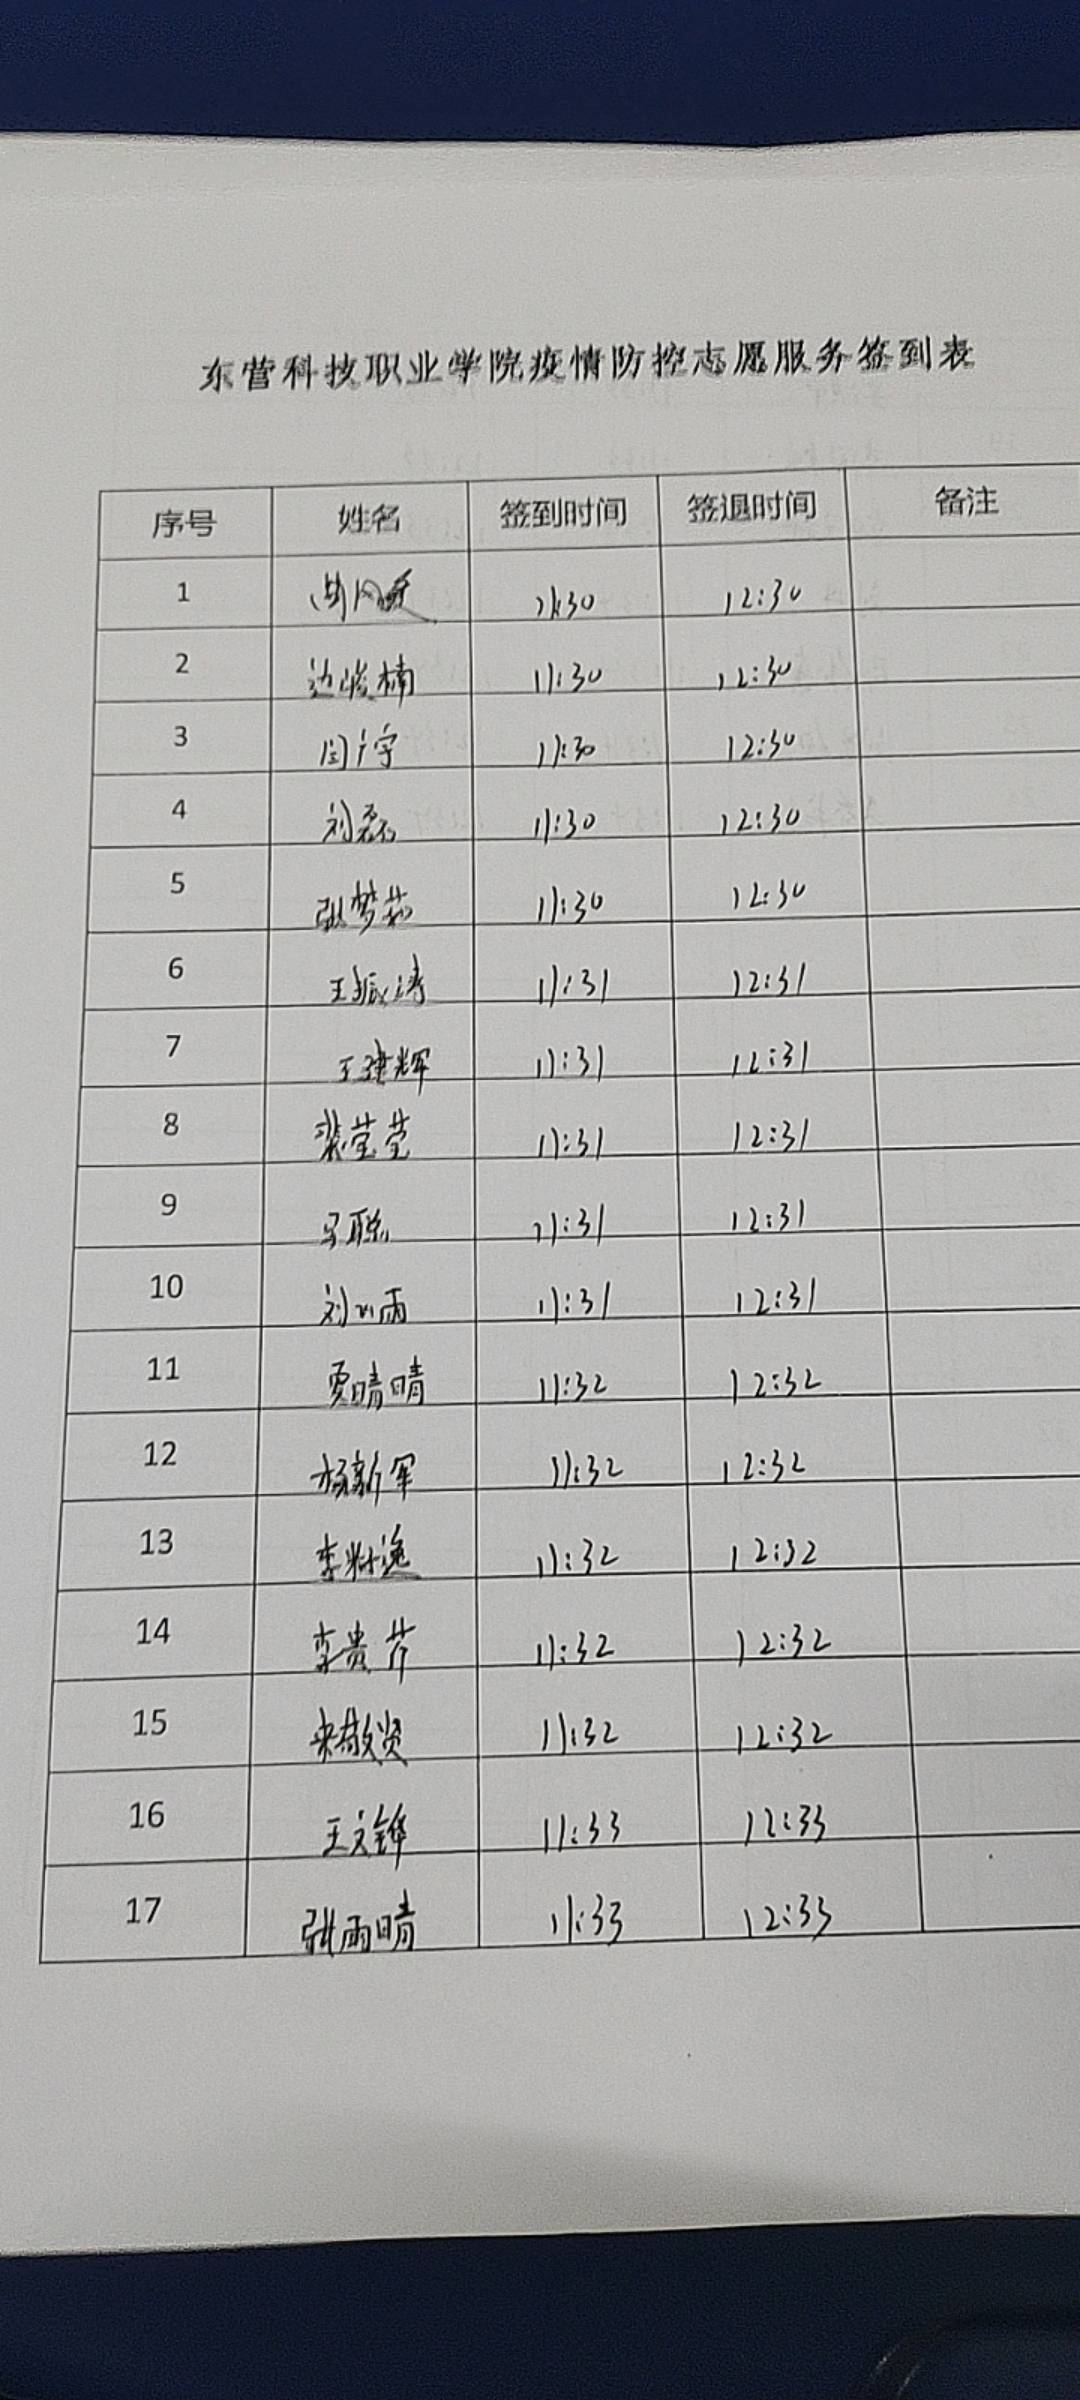 东营科技职业学院疫情防控志愿服务签到表
序号 姓名 签到时间 签退时间 备注
1 11:30 12:30
2 边峻楠 11:30 12:30
3 闫广宇 11:30 12:30
4 刘磊 11:30 12:30
5 张梦茹 11:30 12:30
6 王振涛 11:31 12:31
7 王建辉 11:31 12:31
8 裴莹莹 11:31 12:31
9 马聪 11:31 12:31
10 刘小雨 11:31 12:31
11 贾晴晴 11:32 12:32
12 杨新军 11:32 12:32
13 李 逸 11:32 12:32
14 李贵芹 11:32 12:32
15 来敬贤 11:32 12:32
16 王文铧 11:33 12:33
17 张雨晴 11:33 12:33